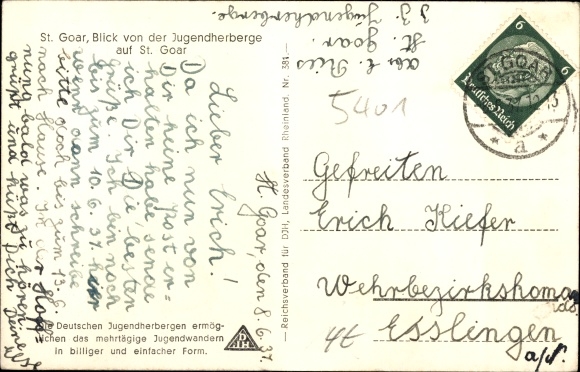 St. Goar, Blick von der Jugendherberge
auf St. Goar
St. Goar, den 8.6.37.
Lieber Erich!
Da ich nun von
Dir keine Post er=
halten habe, sende
ich Dir Die besten
Grüße. Ich bin noch
bis zum 10.6.37. hier
wenn dann schreibe
bitte doch bis zum 13.6.
nach Hause. In der Hoff=
nung bald was zu hören
grüßt und küßt Dich
Deine
Die Deutschen Jugendherbergen ermög-
lichen das mehrtägige Jugendwandern
in billiger und einfacher Form.
DJH
— Reichsverband für DJH, Landesverband Rheinland, Nr. 381.—
abs.
St. Goar.
z. Z. Jugendherberge.
5401
6 6
Deutsches Reich
ST. GOAR
a
Gefreiten
Erich Kiefer
Wehrbezirkskoma
ndo.
Esslingen
a/N.